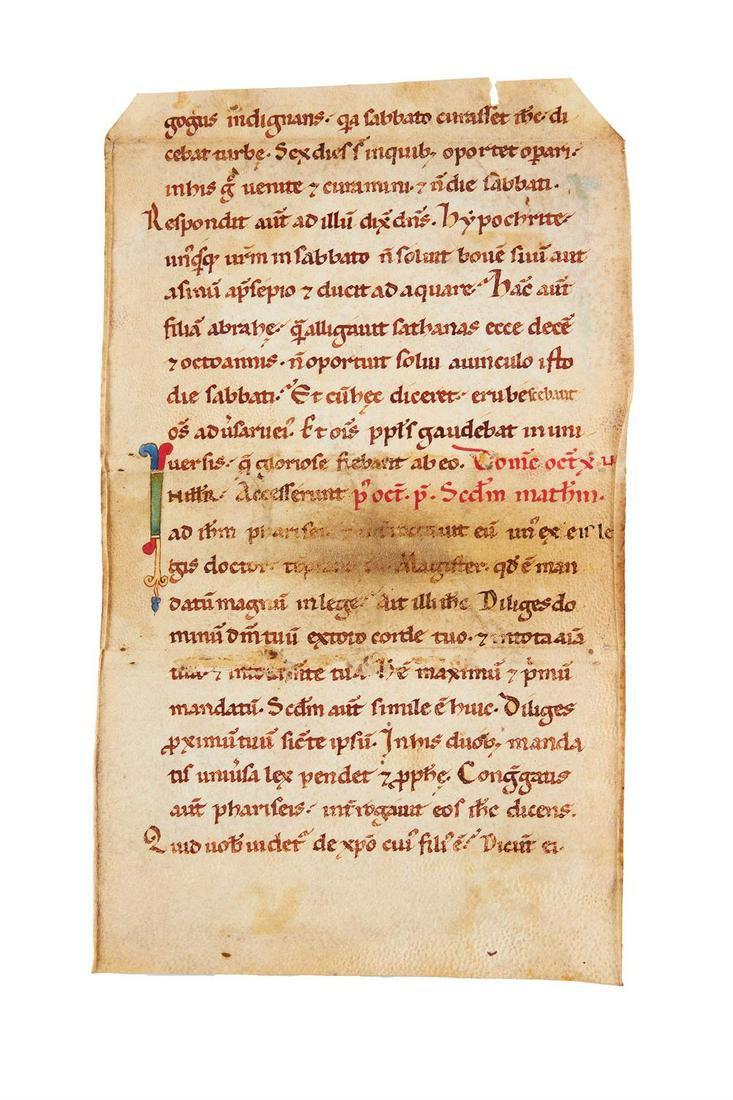 gogus indignans. q̃a sabbato curasset ih̃c. di
cebat turbę. Sex dies s̃ inquib; oportet op̱ari.
in his g̃ venite ⁊ curamini. ⁊ ñ die sabbati.
Respondit aut̃ ad illũ dix̃ dñs. Hypochrite.
un᷒q̃sq; ur̃m in sabbato ñ soluit bouẽ suũ aut
asinũ ap̃sepio ⁊ ducit ad aquare. Hãc aut̃
filiã abrahę. q̃ alligauit sathanas ecce decẽ
⁊ octo annis. ñ oportuit solui a uinculo isto
die sabbati. Et cũ hęc diceret. erubescebant
om̃s aduersarii ei᷒. Et om̃is ppl̃s gaudebat in uni
uersis. q̃ gloriose fiebant ab eo. Dom̃c oct̃ x u
Accesserunt p᷒ oct̃. p̃. Scd̃m math̃m.
ad ih̃m pharisei. ⁊ eũ un᷒ ex eis le
gis doctor Magister. qd̃ ẽ man
datũ magnũ in lege. Ait illi ih̃c. Diliges do
minũ dm̃ tuũ ex toto corde tuo. ⁊ in tota aĩa
tua. ⁊ tua. H̃ ẽ maximũ ⁊ p̃mũ
mandatũ. Scd̃m aut̃ simile ẽ huic. Diliges
ꝓximũ tuũ sic̃ te ipsũ. In his duob; manda
tis uniũsa lex pendet ⁊ ꝓphę. Cong̃gatis
aut̃ phariseis. int̃rogauit eos ih̃c dicens.
Quid uob̃ uidet᷑ de xp̃o cui᷒ fili᷒ ẽ. Dicũt ei.